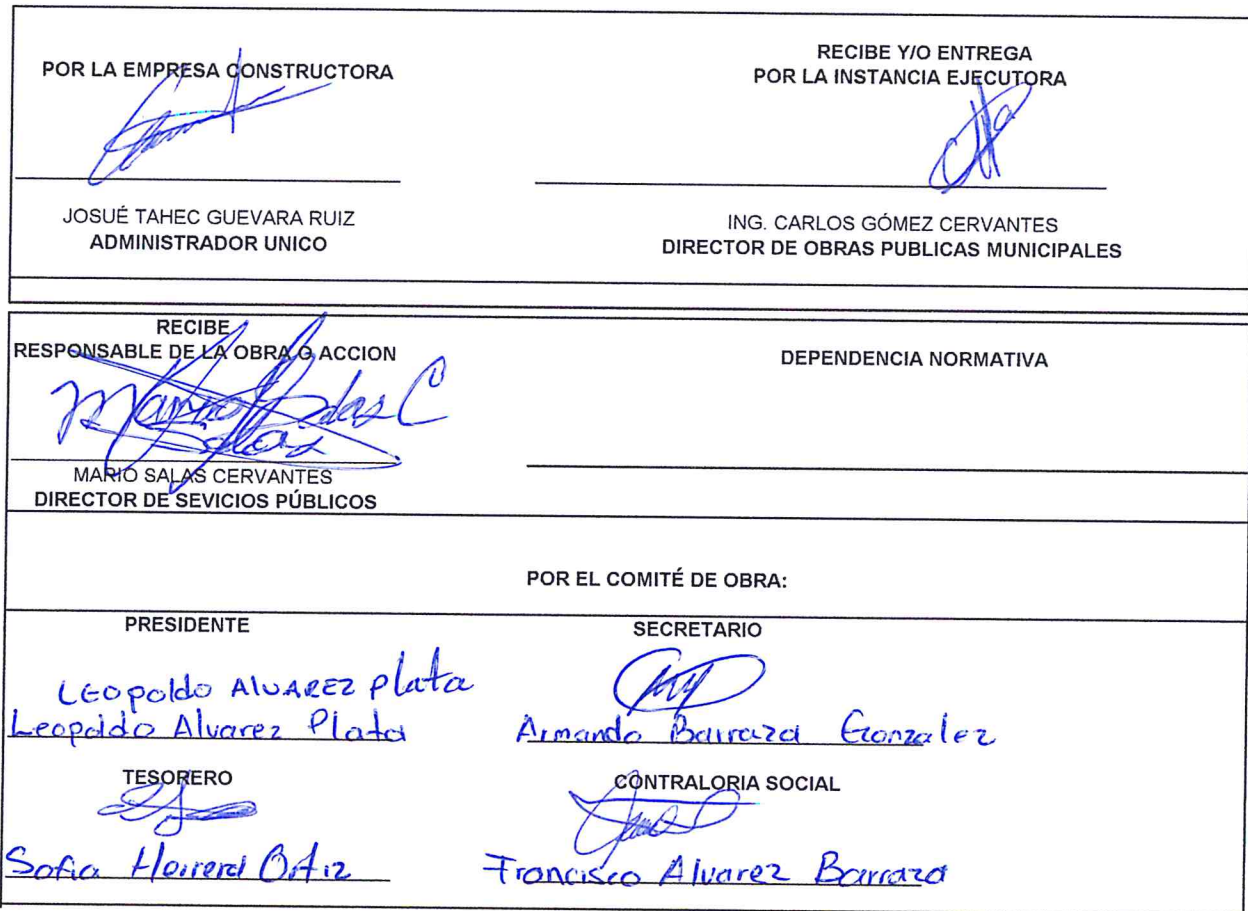 POR LA EMPRESA CONSTRUCTORA
RECIBE Y/O ENTREGA
POR LA INSTANCIA EJECUTORA
JOSUÉ TAHEC GUEVARA RUIZ
ADMINISTRADOR UNICO
ING. CARLOS GÓMEZ CERVANTES
DIRECTOR DE OBRAS PUBLICAS MUNICIPALES
RECIBE
RESPONSABLE DE LA OBRA O ACCION
Mario Salas C
Salas
MARIO SALAS CERVANTES
DIRECTOR DE SEVICIOS PÚBLICOS
DEPENDENCIA NORMATIVA
POR EL COMITÉ DE OBRA:
PRESIDENTE
LEOpoldo AlvAREZ Plata
Leopoldo Alvarez Plata
SECRETARIO
Armando Barraza Gonzalez
TESORERO
Sofia Herrera Ortiz
CONTRALORIA SOCIAL
Francisco Alvarez Barraza